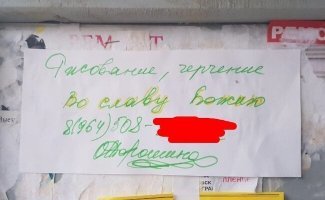 РЕМ Т
РЕМО
Рисование, черчение
Во славу Божию
8(964)508-